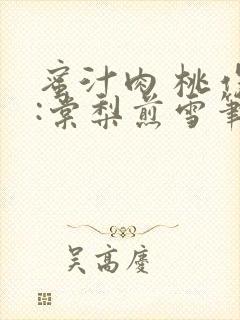 蜜汁肉桃作
:棠梨煎雪笔
吴高庆